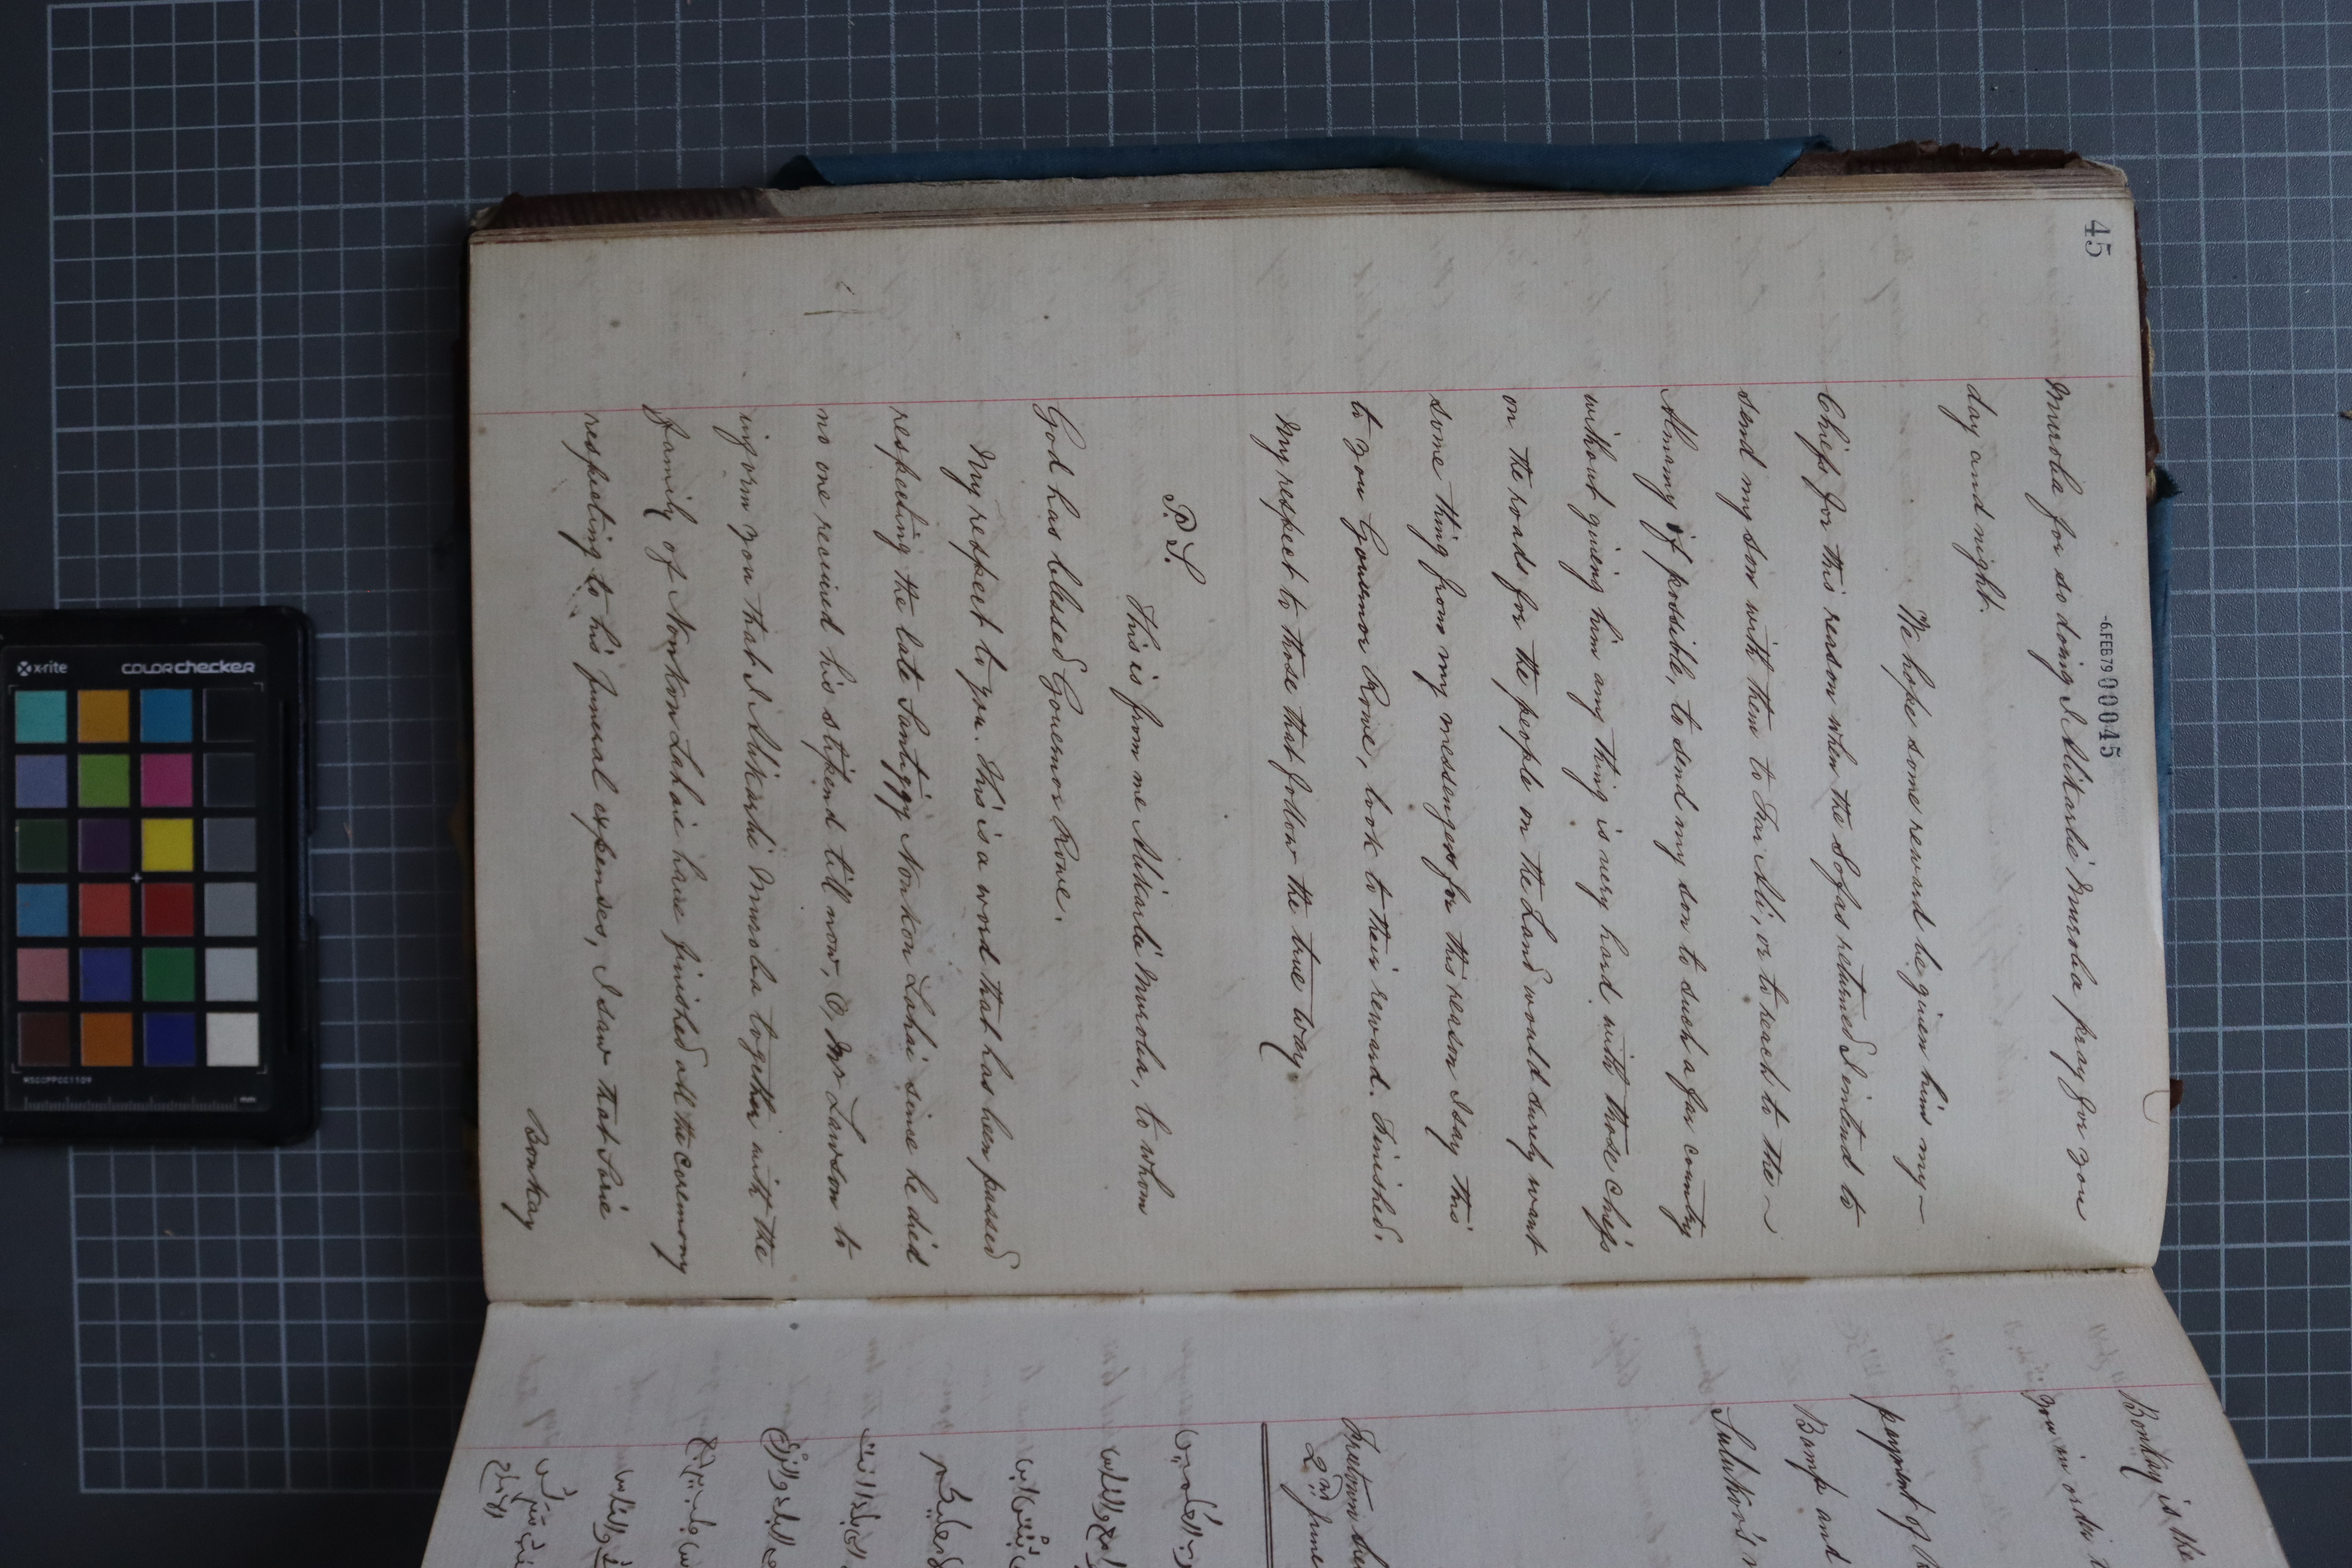 45
-6.FEB79 000045
Muroba for so doing I Alikarlie Muroba pray for you
day and night.
We hope some reward be given him my —
Chiefs for this reason when the Sofas returned I intend to
send my son with them to Fai Ali, or to reach to the ~
Almamy if possible, to send my son to such a far country
without giving him any thing is very hard with those chiefs
on the roads for the people on the Land would surely want
some thing from my messengers for this reason I say this
to you Governor Rowe, look to their reward. Finished.
My respect to those that follow the true way.
P.S.
This is from me Alikarlie Muroba, to whom
God has blessed Governor Rowe.
My respect to you. This is a word that has been passed
respecting the late Santiggy Nonkon Lahai since he died
no one received his stipend till now, O, Mr Lawson to
inform you that I Alikarlie Muroba together with the
Family of Nonkon Lahaie have finished all the ceremony
respecting to his funeral expenses, I saw that Sorie
Bonkay
Bonkay is the
you in order t
payment of
Bomp and
Sulukoo's
Freetown
2nd June